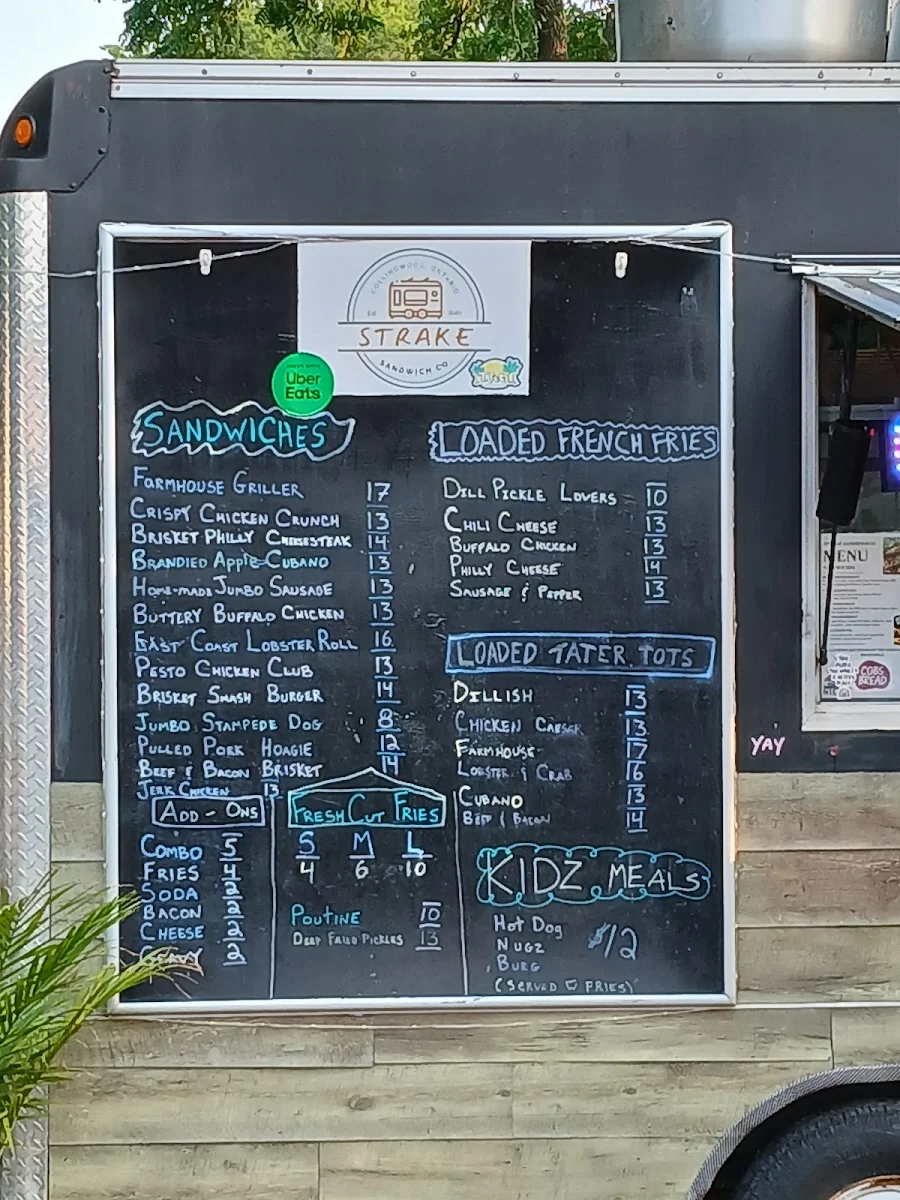 COLLINGWOOD, ONTARIO
STRAKE
SANDWICH CO
Uber
Eats
SANDWICHES
FARMHOUSE GRILLER 17
CRISPY CHICKEN CRUNCH 13
BRISKET PHILLY CHEESESTEAK 14
BRANDIED APPLE CUBANO 13
HOME-MADE JUMBO SAUSAGE 13
BUTTERY BUFFALO CHICKEN 13
EAST COAST LOBSTER ROLL 16
PESTO CHICKEN CLUB 13
BRISKET SMASH BURGER 14
JUMBO STAMPEDE DOG 8
PULLED PORK HOAGIE 12
BEEF & BACON BRISKET 14
JERK CHICKEN 13
ADD-ONS
COMBO 5
FRIES 4
SODA 2
BACON 2
CHEESE 2
GRAVY 2
FRESH CUT FRIES
S M L
4 6 10
POUTINE 10
DEEP FRIED PICKLES 13
LOADED FRENCH FRIES
DILL PICKLE LOVERS 10
CHILI CHEESE 13
BUFFALO CHICKEN 13
PHILLY CHEESE 14
SAUSAGE & PEPPER 13
LOADED TATER TOTS
DILLISH 13
CHICKEN CAESAR 13
FARMHOUSE 17
LOBSTER & CRAB 16
CUBANO 13
BEEF & BACON 14
KIDZ MEALS
HOT DOG
NUGZ $12
BURG
(SERVED FRIES)
YAY
MENU
COBS
BREAD